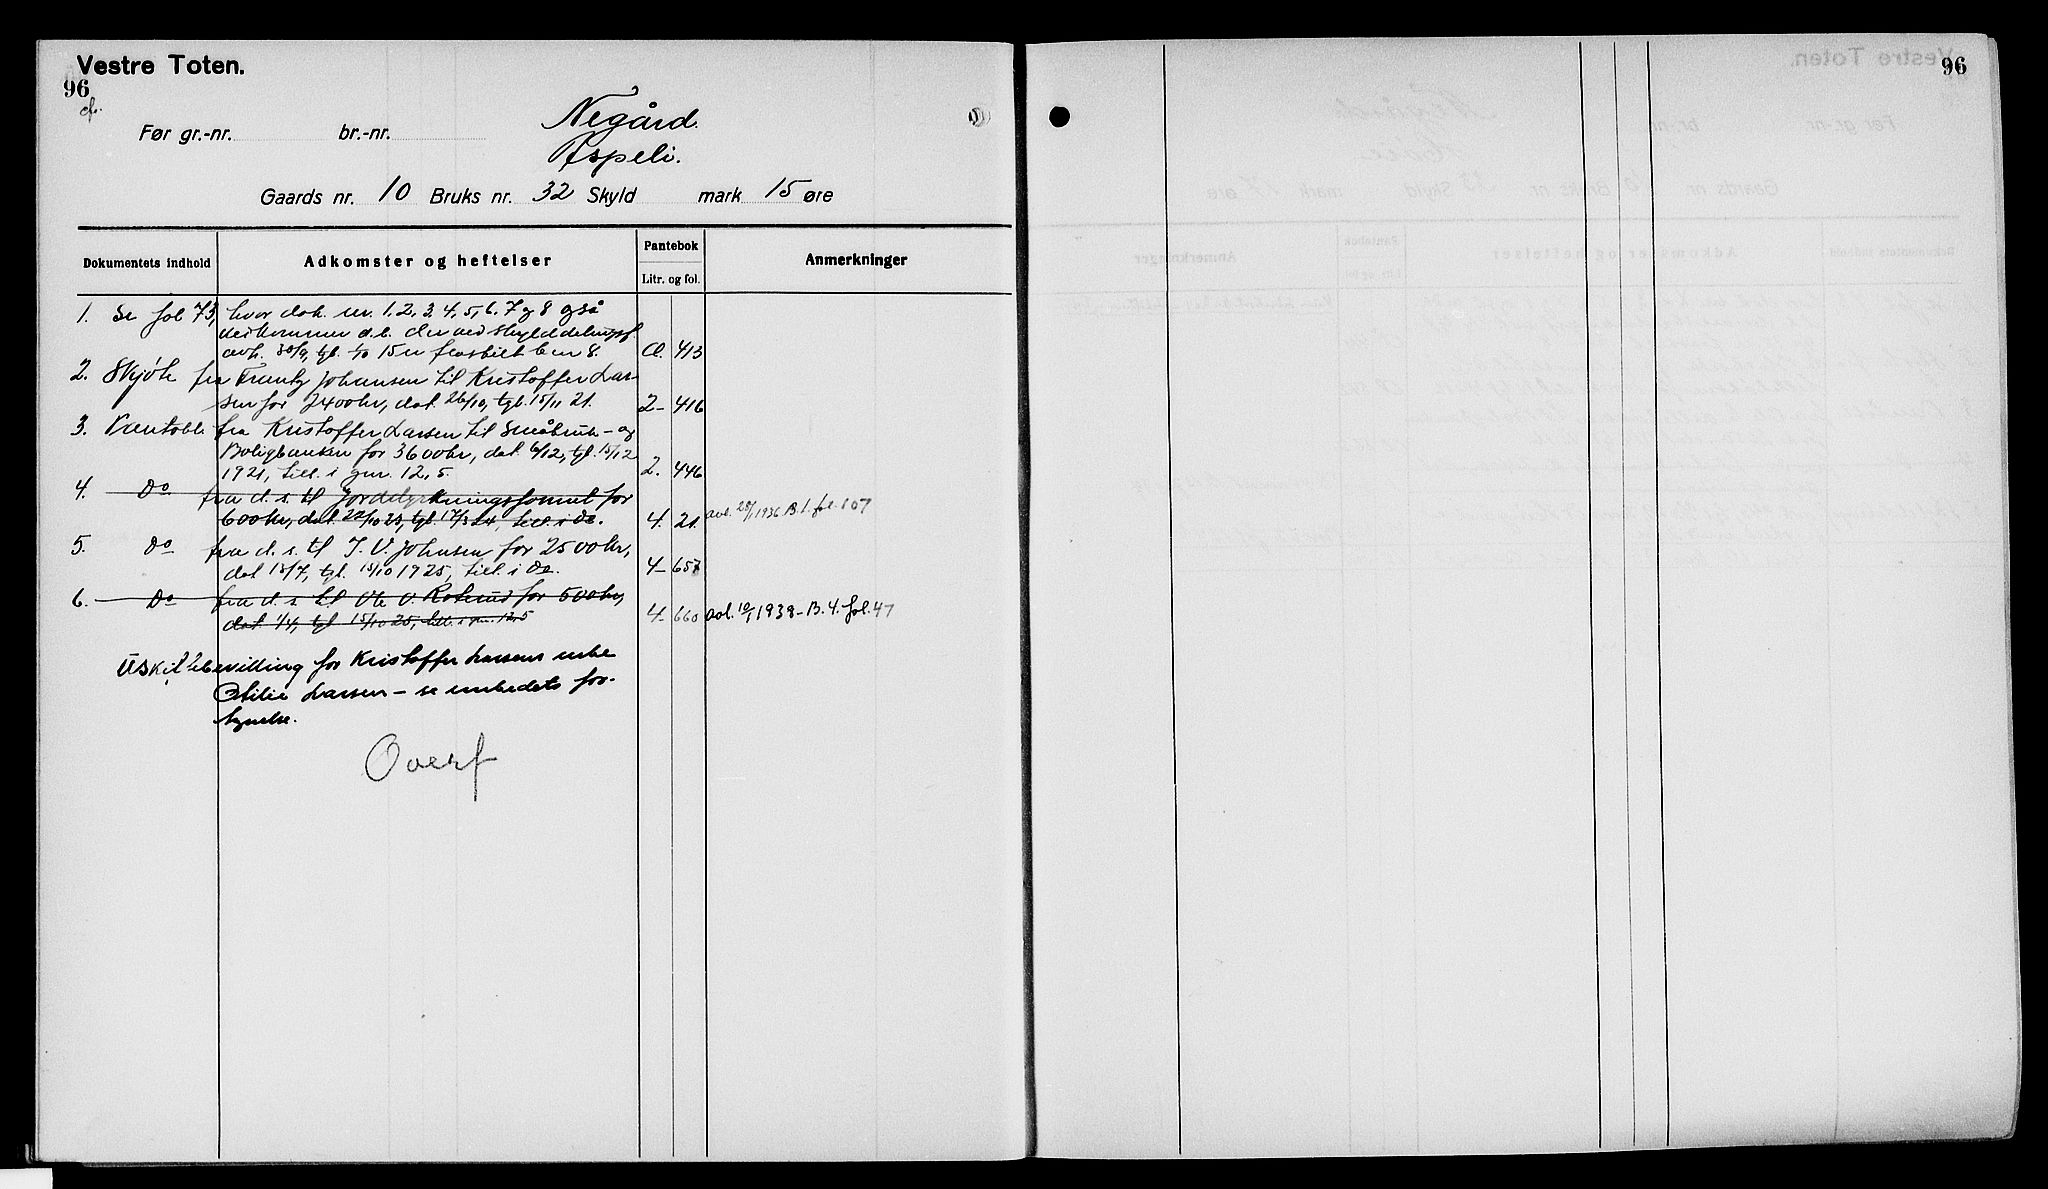 Vestre Toten.
96
cf.
Før gr.-nr. br.-nr.
Negård.
Aspeli.
Gaards nr. 10 Bruks nr. 32 Skyld mark 15 øre
Dokumentets indhold
Adkomster og heftelser
Pantebok
Litr. og fol.
Anmerkninger
1. Se fol 73, hvor dok. nr. 1, 2, 3, 4, 5, 6, 7 og 8 også
vedkommer d. e. der ved skylddelingsf.
avh. 30/9, tgl. 1/10 15 er fraskilt b. nr 8. A. 413
2. Skjøte fra Frantz Johansen til Kristoffer Lar-
sen for 2400 kr, dat. 26/10, tgl. 15/11 21. 2- 416
3. Pantobl. fra Kristoffer Larsen til Småbruk- og
Boligbanken for 3600 kr, dat. 6/12, tgl. 15/12
1921, till. i gnr. 12, 5. 2. 446
4. Do fra d. s. til Jorddyrkningsfonnet for
600 kr, dat. 22/10 23, tgl. 17/3 24, till. i do. 4. 21. avl. 28/1 1936 B 1. fol. 107
5. Do fra d. s. til J. V. Johnsen for 2500 kr,
dat 13/7, tgl. 15/10 1925, till. i do. 4- 657
6. Do fra d. s. til Ole O. Roterud for 500 kr,
dat. 1/4, tgl 15/10 25, till. i gnr. 12, 5 4- 660 avl. 10/1 1938 - B. 4. fol. 47
Uskiftebevilling for Kristoffer Larsens enke
Otilie Larsen - se embedets for-
tegnelse.
Overf
96